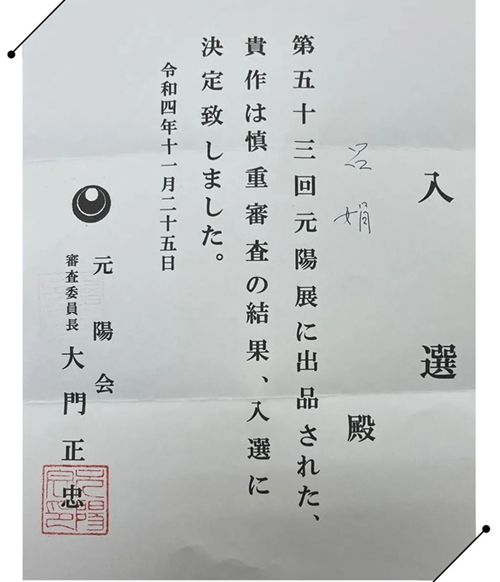 入選
呂娟 殿
第五十三回元陽展に出品された、
貴作は慎重審査の結果、入選に
決定致しました。
令和四年十一月二十五日
元陽会
審査委員長 大門正忠